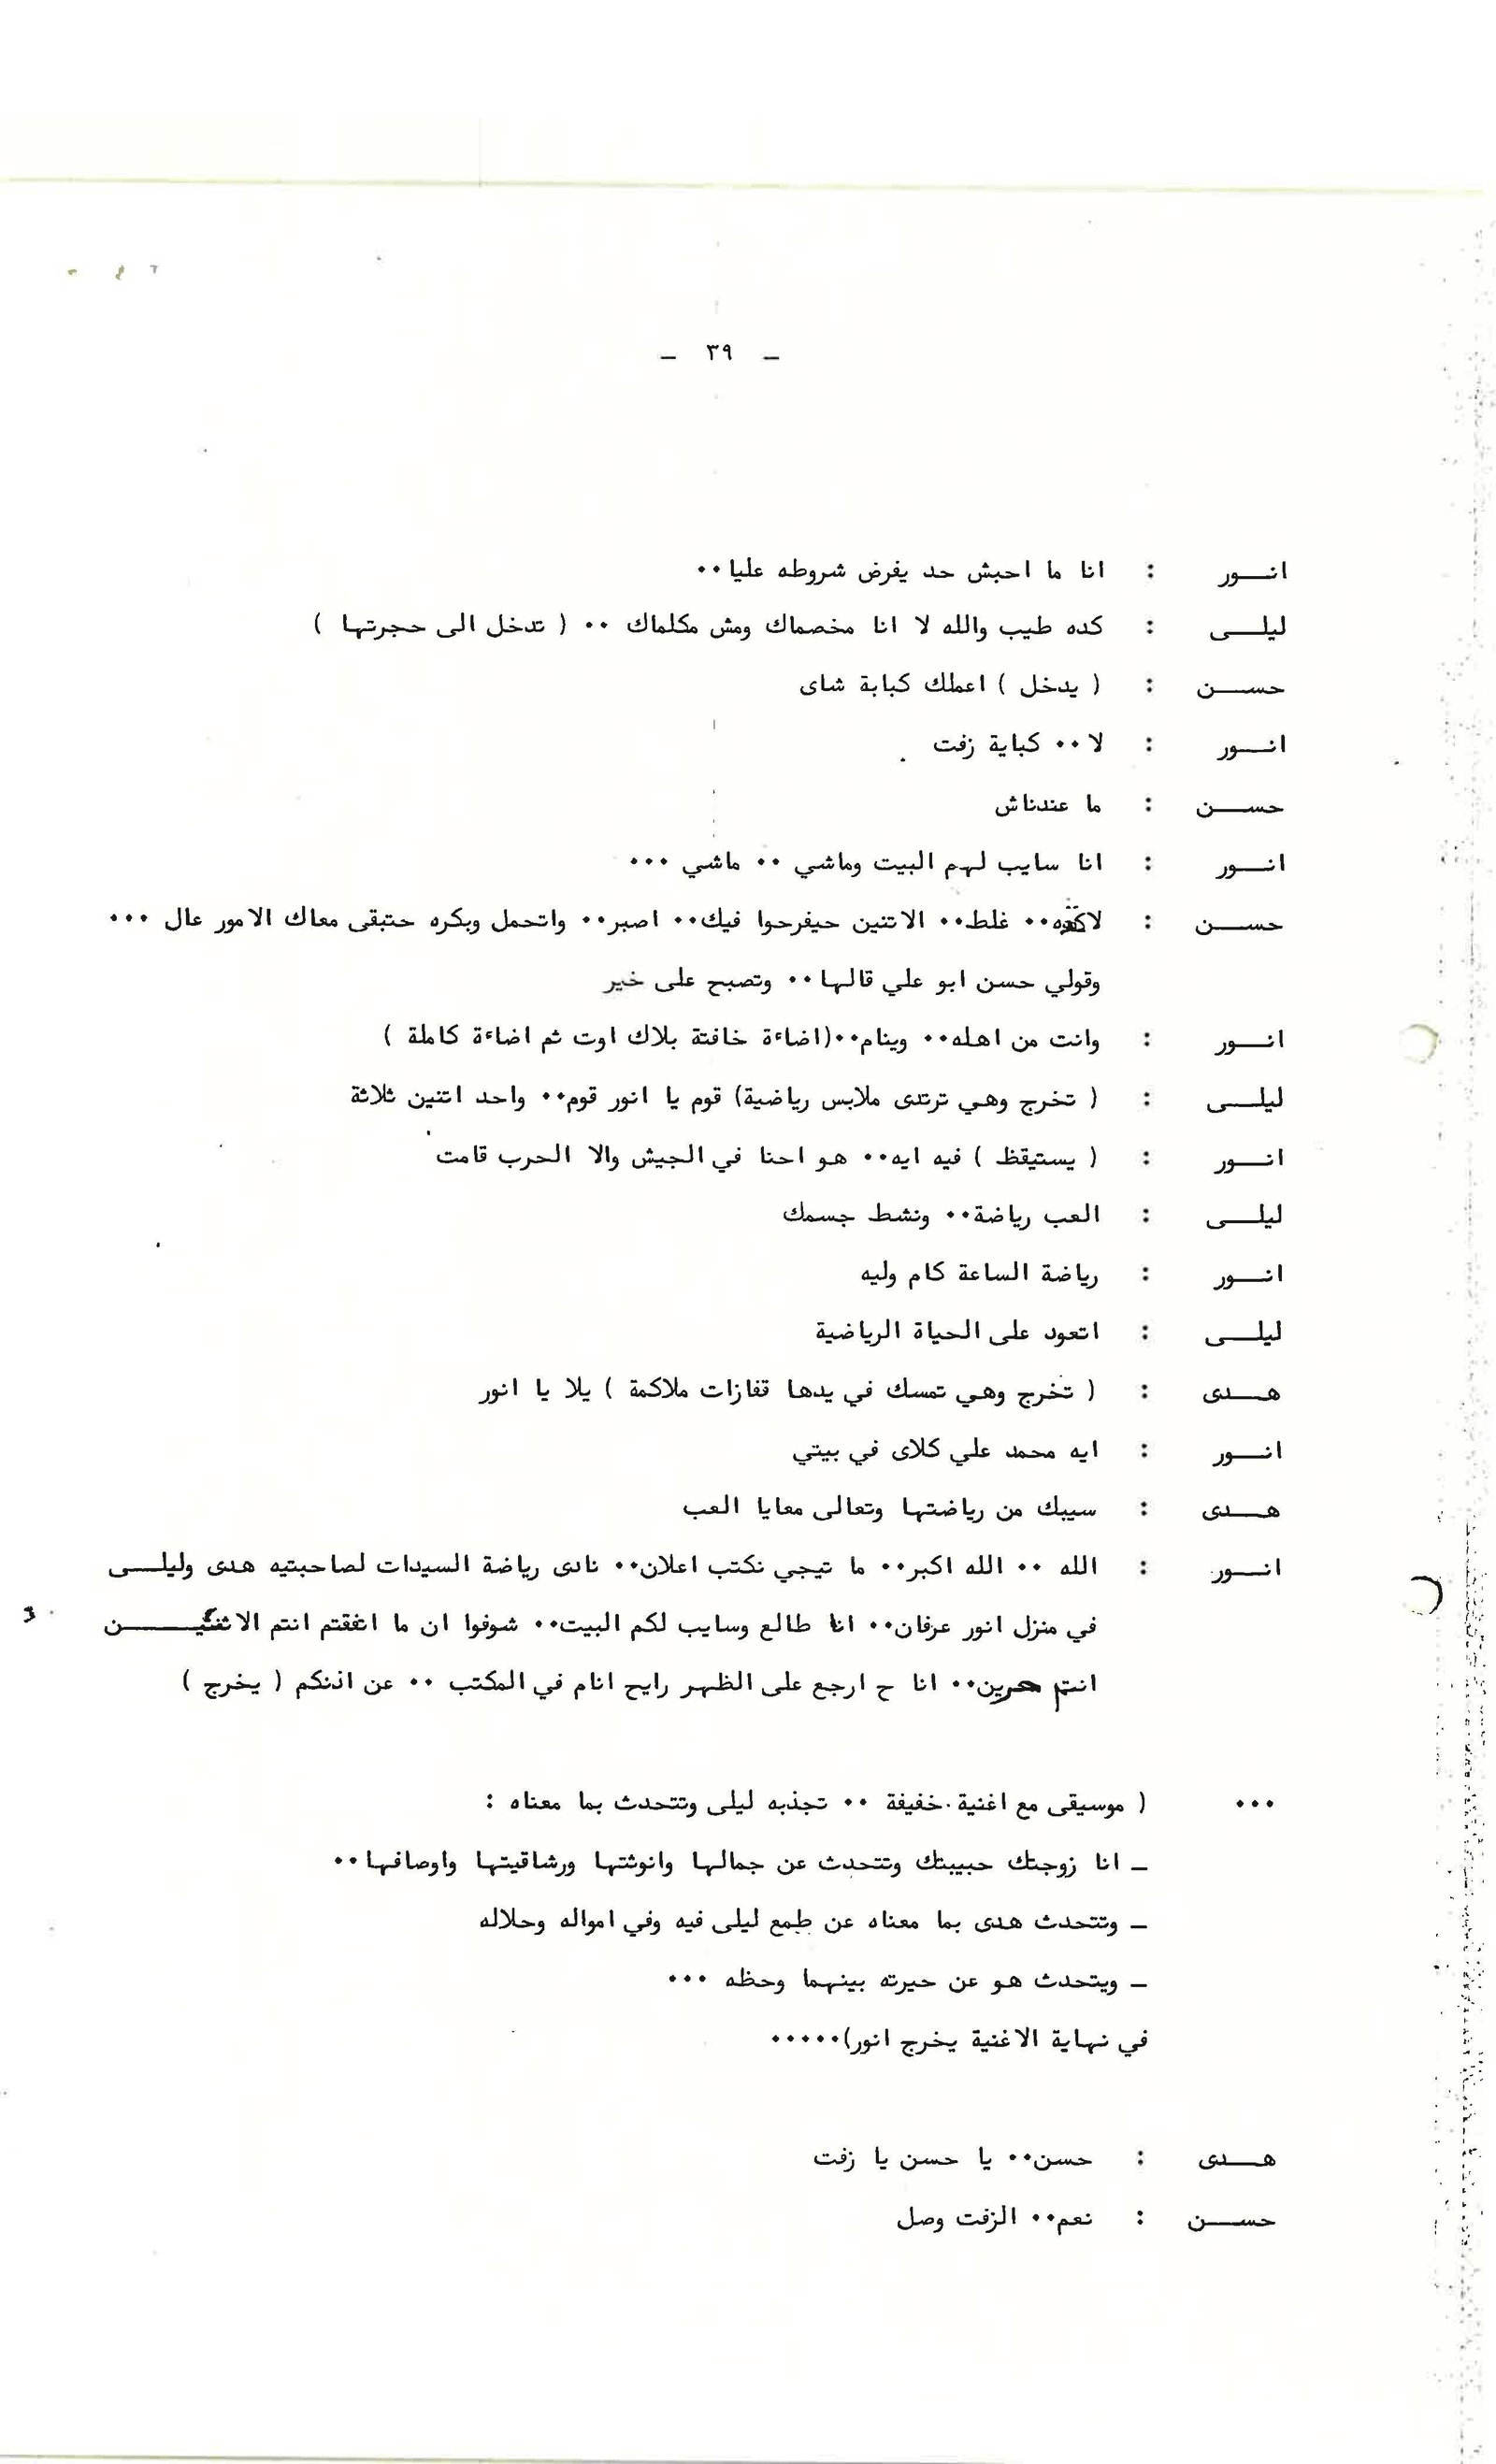 - ٣٩ -
انور : انا ما احبش حد يفرض شروطه عليا..
ليلى : كده طيب والله لا انا مخصماك ومش مكلماك .. ( تدخل الى حجرتها )
حسن : ( يدخل ) اعملك كباية شاى
انور : لا .. كباية زفت
حسن : ما عندناش
انور : انا سايب لهم البيت وماشي .. ماشي ...
حسن : لاكده.. غلط.. الاتنين حيفرحوا فيك.. اصبر.. واتحمل وبكره حتبقى معاك الامور عال ...
وقولي حسن ابو علي قالها.. وتصبح على خير
انور : وانت من اهله.. وينام..(اضاءة خافتة بلاك اوت ثم اضاءة كاملة )
ليلى : ( تخرج وهي ترتدى ملابس رياضية) قوم يا انور قوم.. واحد اتنين ثلاثة
انور : ( يستيقظ ) فيه ايه.. هو احنا في الجيش والا الحرب قامت
ليلى : العب رياضة.. ونشط جسمك
انور : رياضة الساعة كام وليه
ليلى : اتعود على الحياة الرياضية
هدى : ( تخرج وهي تمسك في يدها قفازات ملاكمة ) يلا يا انور
انور : ايه محمد علي كلاى في بيتي
هدى : سيبك من رياضتها وتعالى معايا العب
انور : الله .. الله اكبر.. ما تيجي نكتب اعلان.. نادى رياضة السيدات لصاحبتيه هدى وليلى
في منزل انور عرفان.. انا طالع وسايب لكم البيت.. شوفوا ان ما اتفقتم انتم الاثنين
انتم حرين.. انا ح ارجع على الظهر رايح انام في المكتب .. عن اذنكم ( يخرج )
... ( موسيقى مع اغنية خفيفة .. تجذبه ليلى وتتحدث بما معناه :
- انا زوجتك حبيبتك وتتحدث عن جمالها وانوثتها ورشاقيتها واوصافها..
- وتتحدث هدى بما معناه عن طمع ليلى فيه وفي امواله وحلاله
- ويتحدث هو عن حيرته بينهما وحظه ...
في نهاية الاغنية يخرج انور).....
هدى : حسن.. يا حسن يا زفت
حسن : نعم.. الزفت وصل